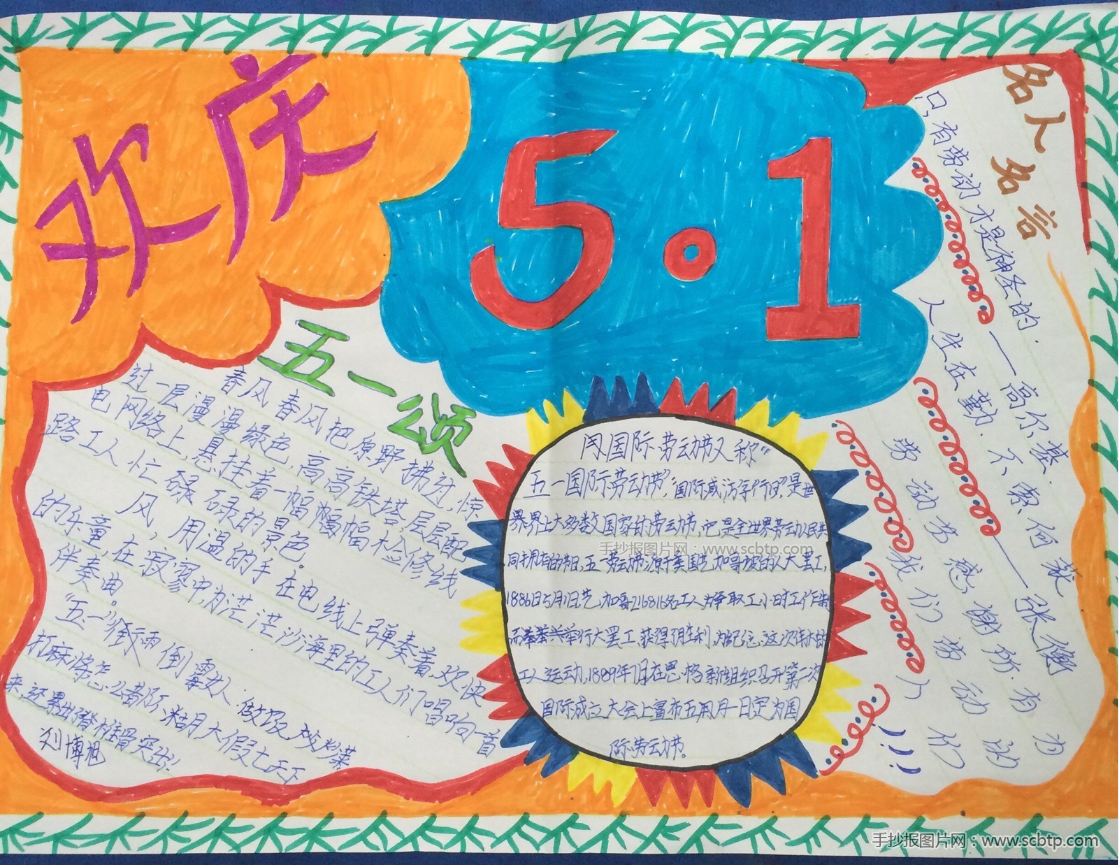 欢庆
5.1
名人名言
只有劳动才是神圣的.
——高尔基
人生在勤.不索何获
——张衡
劳动者我们劳动
感谢所有为
我们劳动的
人们!!!
五一颂
春风春风把原野拂过,惊
过一层漫漫绿色,高高铁塔层层配
电网络上,悬挂着一幅幅检修线
路工人忙碌碌的景色。
风用温的手在电线上弹奏着欢快
的乐章,在寂寥中为茫茫沙海里的工人们唱响一首
伴奏曲。
打麻将怎么着都行,精月大假七天下
刘博旭
国际劳动节又称“
五一国际劳动节”,“国际示威游行日”是世
界上大多数国家的劳动节,它是全世界劳动人民共
同拥有的节日,五一劳动节源于美国芝加哥城的大罢工,
1886年5月1日芝加哥21681名工人为争取工小时工作制
而举行大罢工获得胜利,为纪念这次伟大的
工人运动,1889年7月在恩格斯组织召开第一次
国际成立大会上宣布五月一日定为国
际劳动节。
手抄报图片网:www.scbtp.com
手抄报图片网:www.scbtp.com